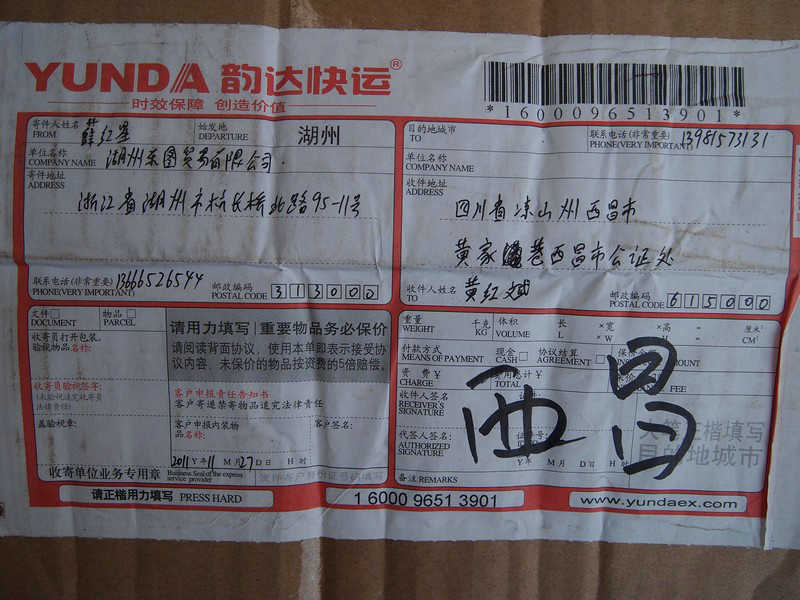 YUNDA 韵达快运®
时效保障 创造价值
*1600096513901*
寄件人姓名 FROM 薛红星
始发地 DEPARTURE 湖州
单位名称 COMPANY NAME 湖州东图贸易有限公司
寄件地址 ADDRESS
浙江省湖州市杭长桥北路95-11号
联系电话(非常重要) PHONE(VERY IMPORTANT) 13666526544
邮政编码 POSTAL CODE 313000
目的地城市 TO
联系电话(非常重要) PHONE(VERY IMPORTANT) 13981573131
单位名称 COMPANY NAME
收件地址 ADDRESS
四川省凉山州西昌市
黄家巷西昌市公证处
收件人姓名 TO 黄红斌
邮政编码 POSTAL CODE 615000
文件 DOCUMENT
物品 PARCEL
收寄员打开包装,
验视物品名称:
收寄员验视签字:
(未验视法究收寄员
法律责任)
盖验视章:
收寄单位业务专用章
Business Seal of the express service provider
请用力填写 | 重要物品务必保价
请阅读背面协议,使用本单即表示接受协
议内容,未保价的物品按资费的5倍赔偿。
客户申报责任告知书
客户寄递禁寄物品追究法律责任
客户申报内装物
品名称:
客户签名:
2011 Y年 11 M月 27 D日 H时
重量 WEIGHT 千克 KG
体积 VOLUME 长 L ×宽 W ×高 H = 厘米³ CM³
付款方式 MEANS OF PAYMENT
现金 CASH
协议结算 AGREEMENT
资费¥ CHARGE
费用总计¥ TOTAL
FEE
收件人签名 RECEIVER'S SIGNATURE
代签人签名: AUTHORIZED SIGNATURE
Y年 M月 D日 H时
备注 REMARKS
西昌
填写
目的地城市
请正楷用力填写 PRESS HARD
1 6000 9651 3901
www.yundaex.com